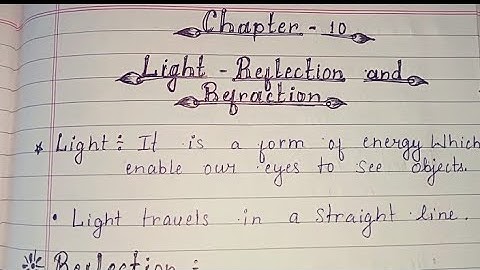 Chapter - 10
Light - Reflection and
Refraction
* Light ÷ It is a form of energy Which
enable our eyes to see objects.
• Light travels in a straight line.
Reflection :